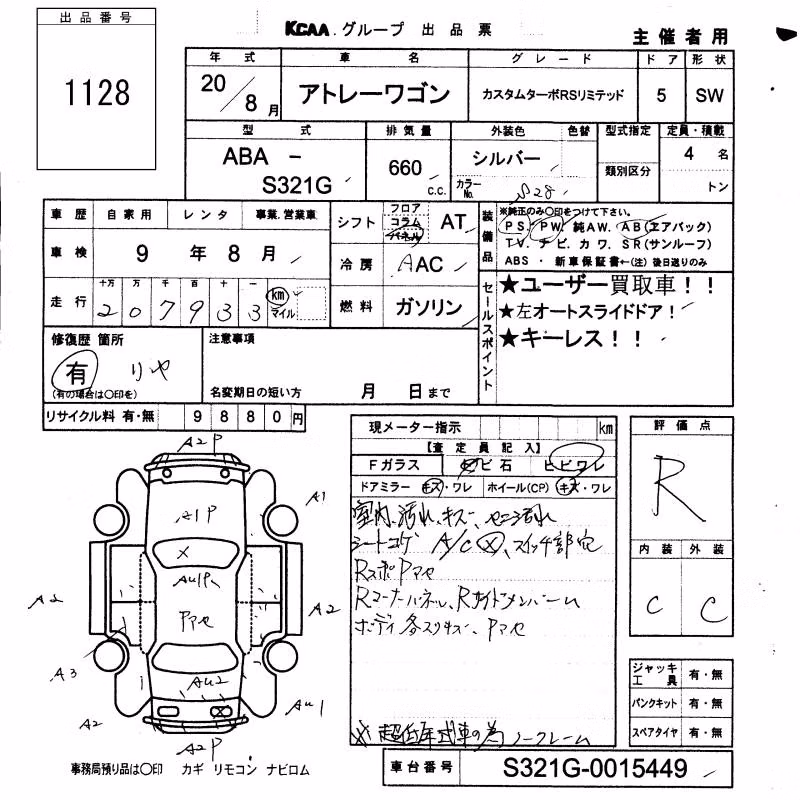 出品番号
1128
KCAA.グループ 出品票
主催者用
年式 車名 グレード ドア 形状
20/8月 アトレーワゴン カスタムターボRSリミテッド 5 SW
型式 排気量 外装色 色替 型式指定 定員・積載
ABA - S321G 660 c.c. シルバー カラーNo. S28 類別区分 4名 トン
車歴 自家用 レンタ 事業.営業車
車検 9年8月
走行 十万 万 千 百 十 一
207933 km マイル
シフト フロア コラム パネル AT
冷房 AAC
燃料 ガソリン
装備品
※純正のみ〇印をつけて下さい。
PS. PW. 純AW. AB(エアバック)
TV. ナビ. カワ. SR(サンルーフ)
ABS ・ 新車保証書←(注) 後日送りのみ
セールスポイント
★ユーザー買取車!!
★左オートスライドドア!
★キーレス!!
修復歴 箇所
有 リヤ
(有の場合は〇印を)
注意事項
名変期日の短い方 月 日まで
リサイクル料 有・無 9880円
現メーター指示 km
【査定員記入】
Fガラス トビ石 ヒビワレ
ドアミラー キズ・ワレ ホイール(CP) キズ・ワレ
室内、汚れ、キズ、
シートコゲ A/C X、スイッチ部穴
RスポPマセ
Rコーナーパネル、Rサイドメンバーム
ボディ各スリキズ、Pマセ
※超低年式車の為ノークレーム
評価点
R
内装 外装
C C
ジャッキ 工具 有・無
パンクキット 有・無
スペアタイヤ 有・無
A2P
A1P
A1
X
AU1P
A2
Pマセ
A2
A3
AU2
AU1
A2
X
A2P
事務局預り品は〇印 カギ リモコン ナビロム
車台番号 S321G-0015449